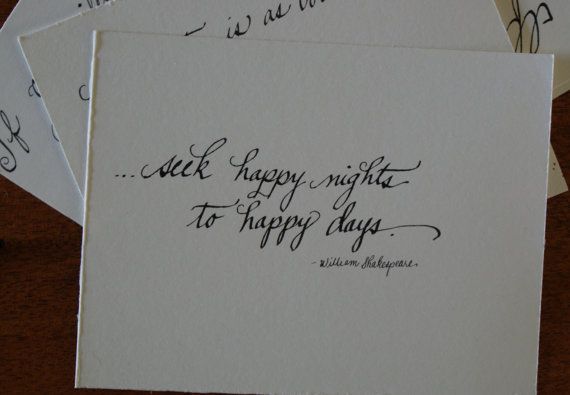 is as
If
...seek happy nights
to happy days.
- William Shakespeare.